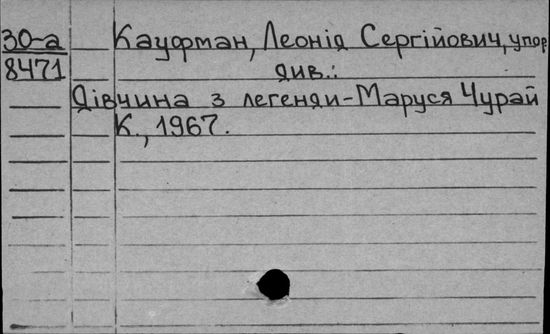 30-а Кауфман, Леонід Сергійович, упор.
8471 див.:
Дівчина з легенди-Маруся Чурай
К., 1967.